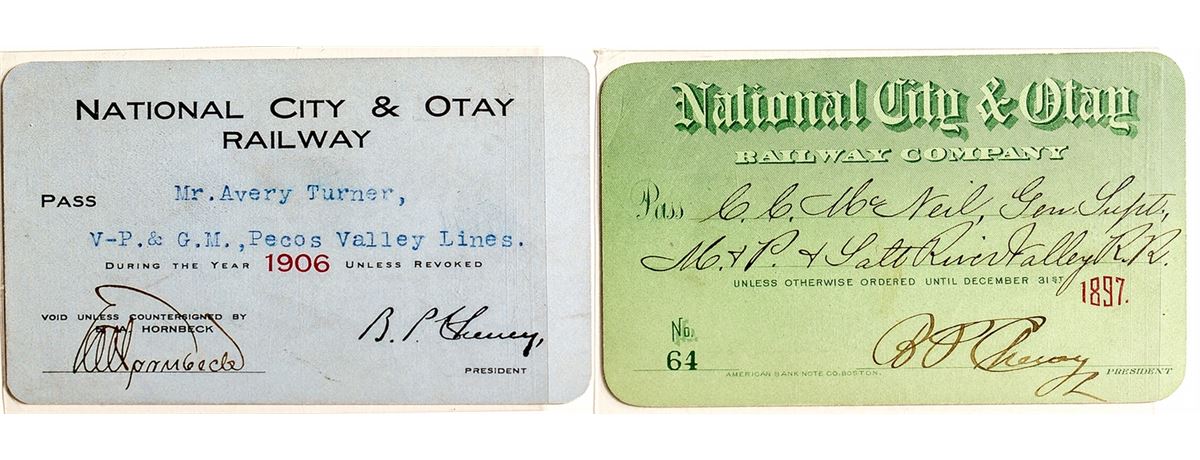 NATIONAL CITY & OTAY
RAILWAY
PASS Mr. Avery Turner,
V-P. & G.M., Pecos Valley Lines.
DURING THE YEAR 1906 UNLESS REVOKED
VOID UNLESS COUNTERSIGNED BY
HORNBECK
B. P. Cheney,
PRESIDENT
National City & Otay
RAILWAY COMPANY
Pass C. C. McNeil, Gen. Supt.,
M. & P. & Salt River Valley R.R.
UNLESS OTHERWISE ORDERED UNTIL DECEMBER 31ST 1897.
No. 64
B P Cheney
AMERICAN BANK NOTE CO. BOSTON.
PRESIDENT